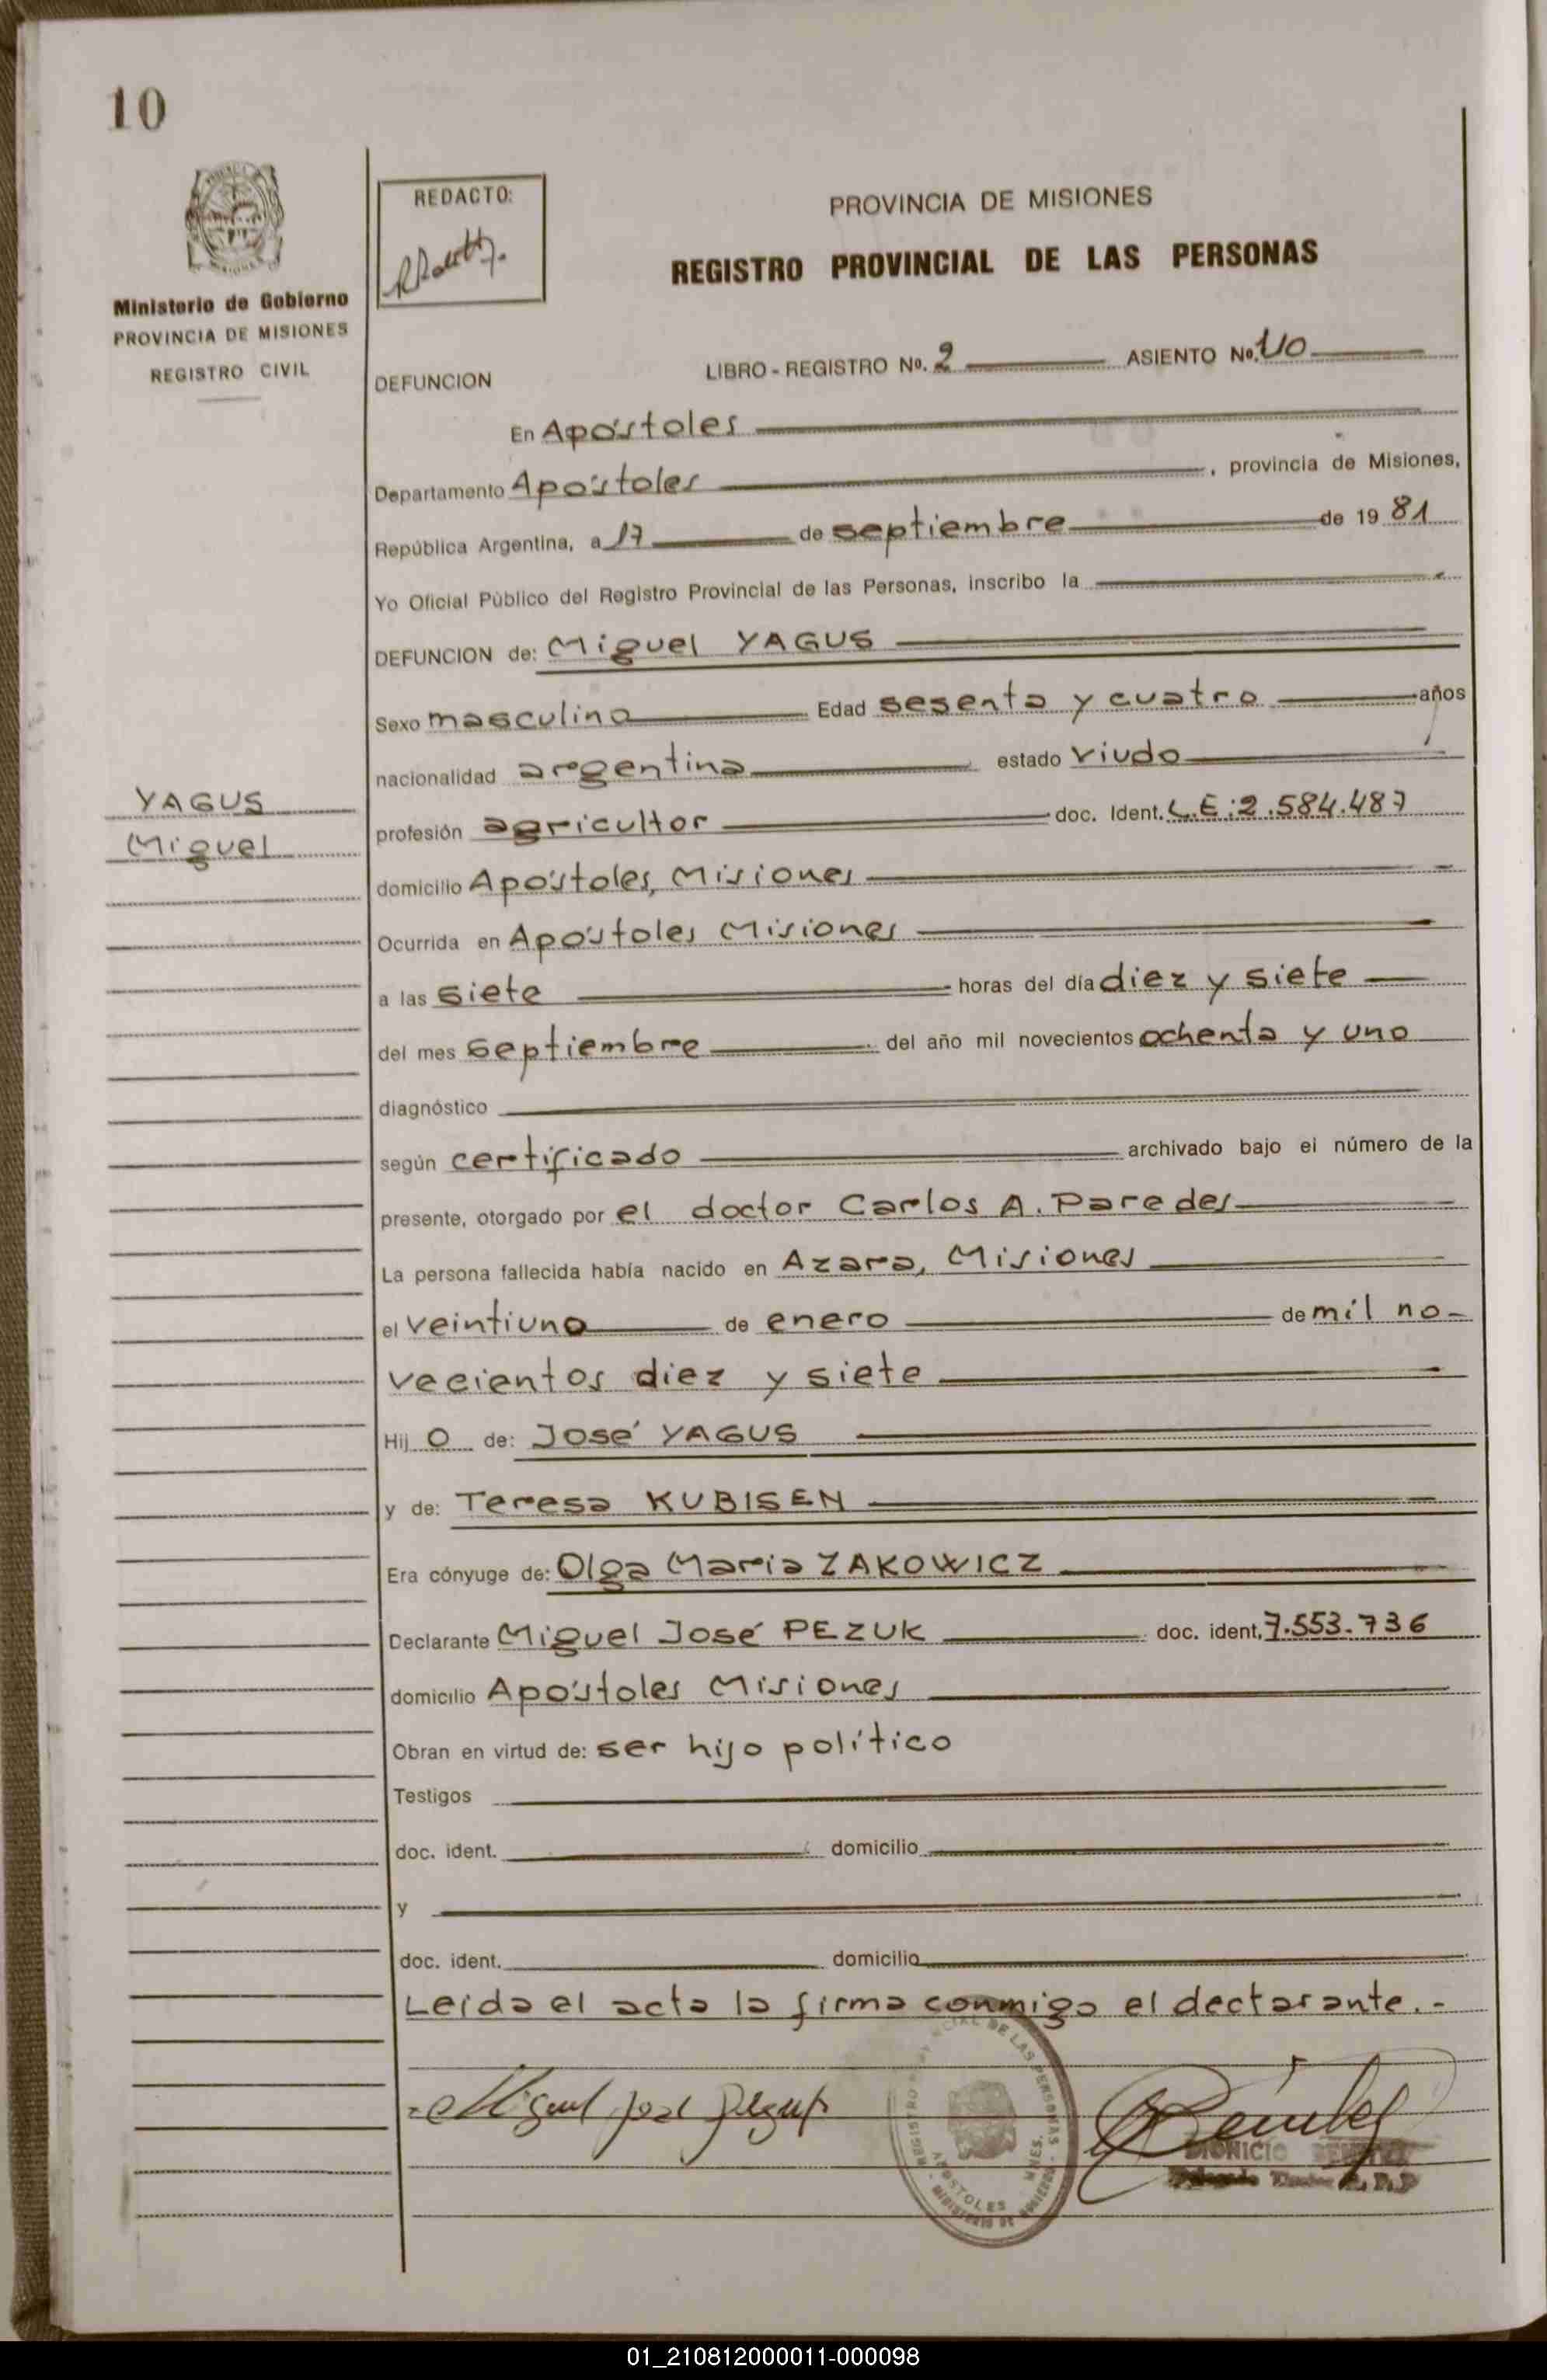 10
REDACTO:
PROVINCIA DE MISIONES
REGISTRO PROVINCIAL DE LAS PERSONAS
Ministerio de Gobierno
PROVINCIA DE MISIONES
REGISTRO CIVIL
DEFUNCION LIBRO - REGISTRO Nº. 2 ASIENTO Nº.
En Apóstoles
Departamento Apóstoles, provincia de Misiones,
República Argentina, a 17 de septiembre de 19 81
Yo Oficial Público del Registro Provincial de las Personas, inscribo la
DEFUNCION de: Miguel YAGUS
Sexo masculino Edad sesenta y cuatro años
nacionalidad argentina estado viudo
YAGUS
Miguel
profesión agricultor doc. Ident. L.E:2.584.487
domicilio Apóstoles, Misiones
Ocurrida en Apóstoles Misiones
a las siete horas del día diez y siete
del mes septiembre del año mil novecientos ochenta y uno
diagnóstico
según certificado archivado bajo el número de la
presente, otorgado por el doctor Carlos A. Paredes
La persona fallecida había nacido en Azara, Misiones
el veintiuno de enero de mil no-
vecientos diez y siete
Hij o de: José YAGUS
y de: Teresa KUBISEN
Era cónyuge de: Olga Maria ZAKOWICZ
Declarante Miguel José PEZUK doc. ident. 7.553.736
domicilio Apóstoles Misiones
Obran en virtud de: ser hijo político
Testigos
doc. ident. domicilio
y
doc. ident. domicilio
Leida el acta la firma conmigo el declarante.-
Miguel José
REGISTRO PROVINCIAL DE LAS PERSONAS
APOSTOLES MNES.
MINISTERIO DE GOBIERNO
DIONICIO
01_210812000011-000098